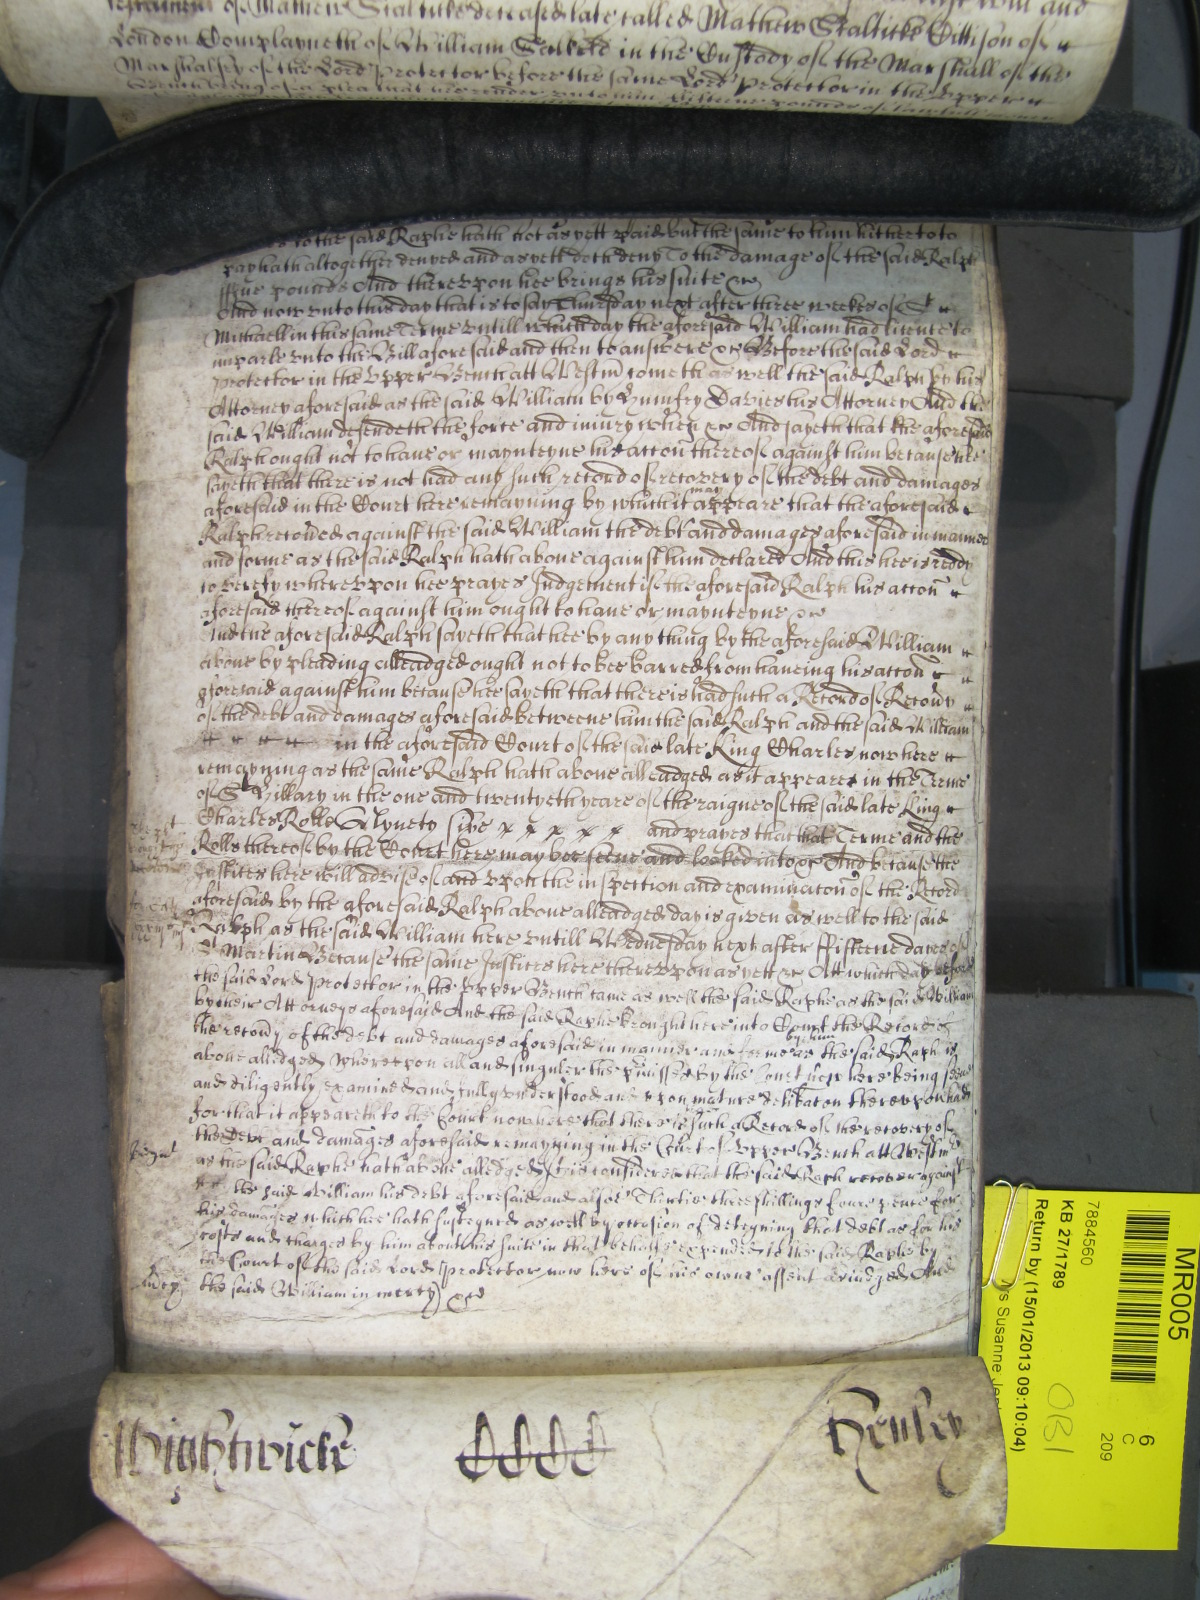 of Mathew Stalticke deceased late called Mathew Stalticke Cittison of
London Complayneth of William in the Custody of the Marshall of the
Marshalsey of the Lord Protector before the same Lord Protector in the Upper
Bench being of a plea that hee render unto him pounds of lawfull money
to the said Raphe hath not as yett paid but the same to him hitherto to
pay hath altogether denyed and as yett doth deny To the damage of the said Ralph
ffive pounds And thereupon hee brings his suite &c
And now unto this day that is to say Thursday next after three weekes of St
Michaell in this same Terme untill which day the aforesaid William had licence to
imparle unto the Bill aforesaid and then to answere &c Before the said Lord
Protector in the Upper Bench att Westm come th as well the said Ralph by his
Attorney aforesaid as the said William by Humfry Davies his Attorney And the
said William defendeth the force and injury when &c And sayeth that the aforesaid
Ralph ought not to have or maynteyne his accon thereof against him because hee
sayeth that there is not had any such record of recovery of the debt and damages
aforesaid in the Court here remayning by which it may appeare that the aforesaid
Ralph recoved against the said William the debt and damages aforesaid in manner
and forme as the said Ralph hath above against him declared And this hee is ready
to verefy whereupon hee prayes Judgement if the aforesaid Ralph his accon
aforesaid thereof against him ought to have or maynteyne &c
And the aforesaid Ralph sayeth that hee by any thing by the aforesaid William
above by pleading alleadged ought not to bee barred from haveing his accon
aforesaid against him because hee sayeth that there is had such a Record of Recovy
of the debt and damages aforesaid betweene him the said Ralph and the said William
in the aforesaid Court of the said late King Charles now here
remayning as the same Ralph hath above alleadged as it appeares in the Terme
of St Hillary in the one and twentyeth yeare of the raigne of the said late King
Charles Rolls and prayes that that Terme and the
Rolls thereof by the Court here may bee seene and looked into &c And because the
Justices here will advise of and upon the inspection and examinacon of the Record
aforesaid by the aforesaid Ralph above alleadged day is given as well to the said
Ralph as the said William here untill Wednesday next after ffifteene dayes of
St Martin Because the same Justices here thereupon as yett &c Att which day before
the said Lord Protector in the Upper Bench came as well the said Raphe as the said William
by their Attorneys aforesaid And the said Raphe brought here into Court the Record of
the recovy of the debt and damages aforesaid in manner and forme as the said Raph is by him
above alledged Whereupon all and singuler the premisses by the Court now here being seene
and diligently examined and fully understood and upon mature deliberacon thereupon had
for that it appeareth to the Court now here that there is such a Record of the recovery of
the Debt and damages aforesaid remayning in the Court of Upper Bench att Westm
as the said Raphe hath above alledged It is considered that the said Raph recover against
the said William his debt aforesaid and alsoe Thirtie three shillings foure pence for
his damages which hee hath susteyned as well by occasion of deteyning that debt as for his
costs and charges by him about his suite in that behalfe expended to the said Raphe by
the Court of the said Lord Protector now here of his owne assent adiudged And
the said William in mercy &c
Wightwicke
Henley
MR005
6
C
209
7884560
KB 27/1789
Return by (15/01/2013 09:10:04)
Susanne
OB1